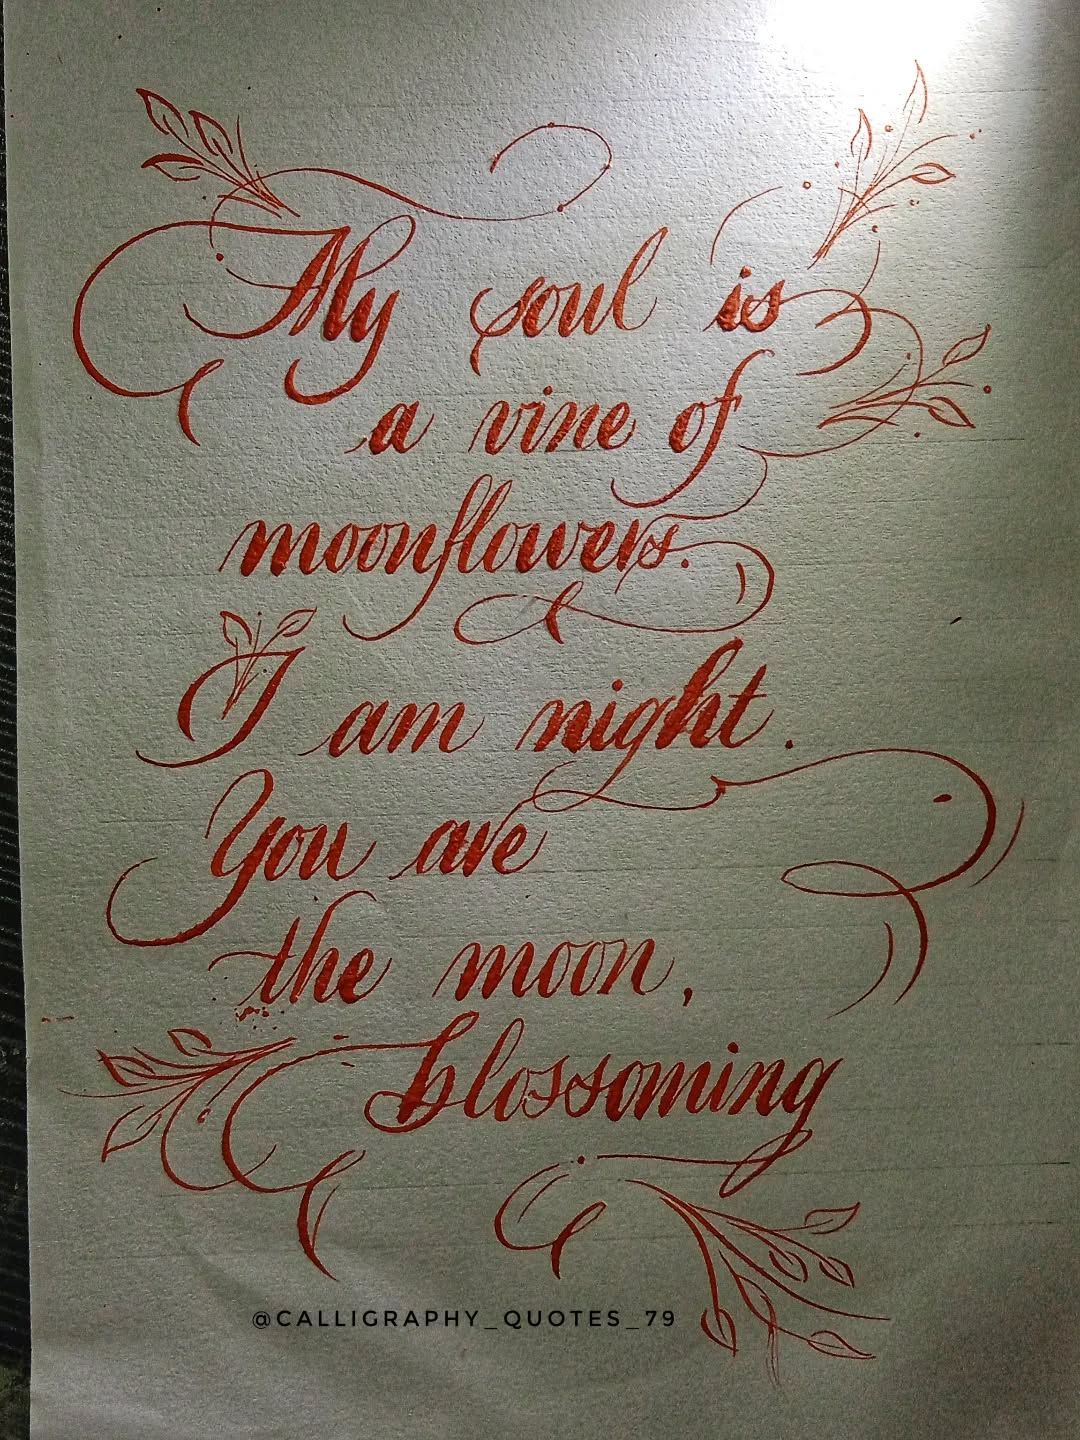 My soul is
a vine of
moonflowers.
I am night.
You are
the moon,
blossoming
@CALLIGRAPHY_QUOTES_79